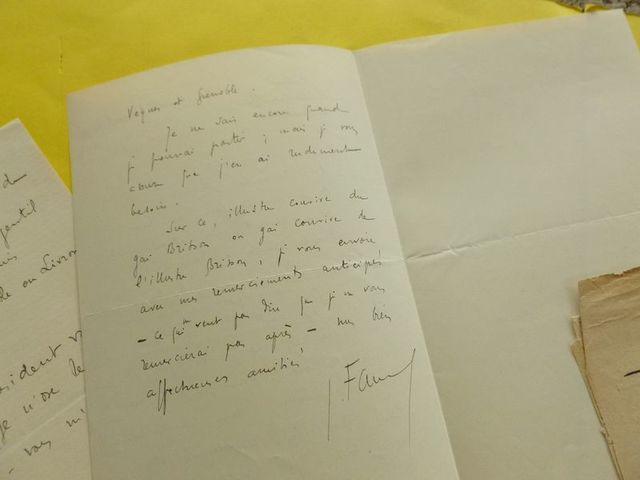 Veynes et Grenoble.
Je ne sais encore quand
je pourrai partir ; mais je vous
assure que j'en ai rudement
besoin.
Sur ce, illustre convive du
gai Brisson ou gai convive de
l'illustre Brisson, je vous envoie
avec mes remerciements anticipés
— ce qui ne veut pas dire que je ne vous
remercierai pas après — mes bien
affectueuses amitiés
de
gentil
ou Livron
président
je n'ose le
- vous m'